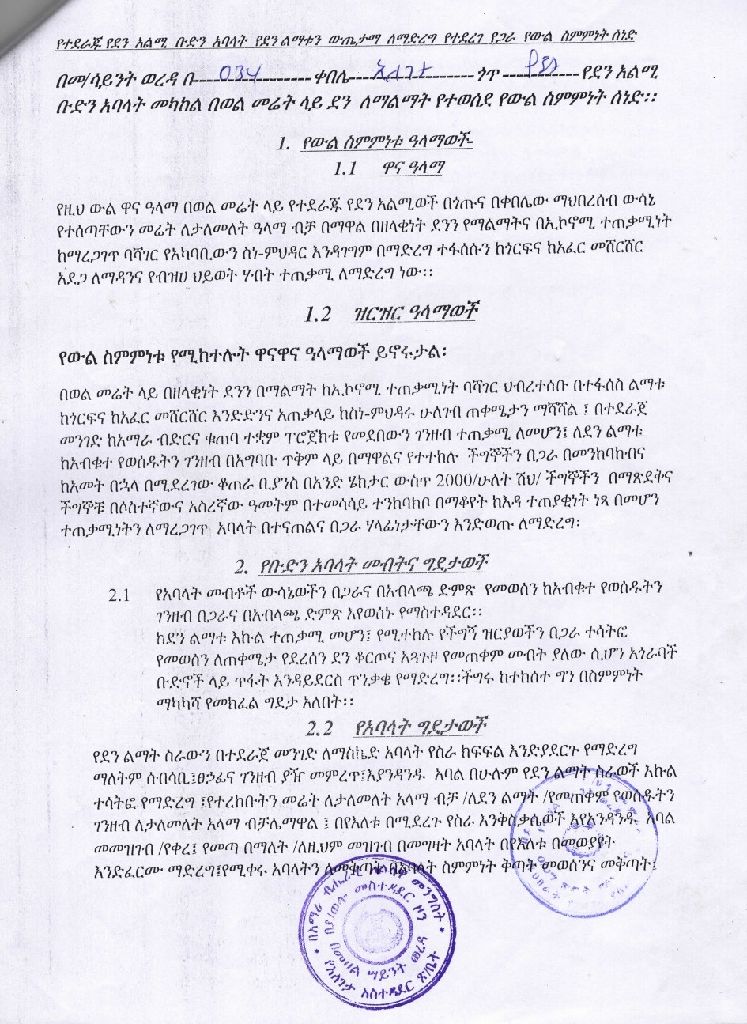 የተደራጁ የደን አልሚ ቡድን አባላት የደን ልማቱን ውጤታማ ለማድረግ የተደረገ የጋራ የውል ስምምነት ሰነድ
በመ/ሳይንት ወረዳ በ 034 ቀበሌ ጎጥ የደን አልሚ
ቡድን አባላት መካከል በወል መሬት ላይ ደን ለማልማት የተወሰደ የውል ስምምነት ሰነድ፡፡
1. የውል ስምምነቱ ዓላማወች
1.1 ዋና ዓላማ
የዚህ ውል ዋና ዓላማ በወል መሬት ላይ የተደራጁ የደን አልሚወች በጎጡና በቀበሌው ማህበረሰብ ውሳኔ
የተሰጣቸውን መሬት ለታለመለት ዓላማ ብቻ በማዋል በዘላቂነት ደንን የማልማትና በኢኮኖሚ ተጠቃሚነት
ከማረጋገጥ ባሻገር የአካባቢውን ስነ-ምህዳር እንዳያገግም በማድረግ ተፋሰሱን ከጎርፍና ከአፈር መሸርሸር
አደጋ ለማዳንና የብዝሀ ህይወት ሃብት ተጠቃሚ ለማድረግ ነው፡፡
1.2 ዝርዝር ዓላማወች
የውል ስምምነቱ የሚከተሉት ዋናዋና ዓላማወች ይኖሩታል፡
በወል መሬት ላይ በዘላቂነት ደንን በማልማት ከኢኮኖሚ ተጠቃሚነት ባሻገር ህብረተሰቡ በተፋሰስ ልማቱ
ከጎርፍና ከአፈር መሸርሸር እንድድንና አጠቃላይ ከስነ-ምህዳሩ ሁለገብ ጠቀሜታን ማሻሻል ፤ በተደራጀ
መንገድ ከአማራ ብድርና ቁጠባ ተቋም ፕሮጀክቱ የመደበውን ገንዘብ ተጠቃሚ ለመሆን፤ ለደን ልማቱ
ከአብቁተ የወሰዱትን ገንዘብ በአግባቡ ጥቅም ላይ በማዋልና የተተከሉ ችግኞችን በጋራ በመንከባከብና
ከአመት በኋላ በሚደረገው ቆጠራ ቢያንስ በአንድ ሄክታር ውስጥ 2000/ሁለት ሽህ/ ችግኞችን በማጽደቅና
ችግኞቹ በሶስተኛውና አስረኛው ዓመትም በተመሳሳይ ተንከባክቦ በማቆየት ከእዳ ተጠያቂነት ነጻ በመሆን
ተጠቃሚነትን ለማረጋገጥ አባላት በተናጠልና በጋራ ሃላፊነታቸውን እንድወጡ ለማድረግ፡
2. የቡድን አባላት መብትና ግዴታወች
2.1 የአባላት መብቶች ውሳኔወችን በጋራና በአብላጫ ድምጽ የመወሰን ከአብቁተ የወሰዱትን
ገንዘብ በጋራና በአብላጫ ድምጽ እየወሰኑ የማስተዳደር፡፡
ከደን ልማቱ እኩል ተጠቃሚ መሆን፤ የሚተከሉ የችግኝ ዝርያወችን በጋራ ተሳትፎ
የመወሰን ለጠቀሜታ የደረሰን ደን ቆርጦና አጓጉዞ የመጠቀም መብት ያለው ሲሆን አጎራባች
ቡድኖች ላይ ጥፋት እንዳይደርስ ጥንቃቄ የማድረግ፡፡ችግሩ ከተከሰተ ግን በስምምነት
ማካካሻ የመክፈል ግዴታ አለበት፡፡
2.2 የአባላት ግዴታወች
የደን ልማት ስራውን በተደራጀ መንገድ ለማስኬድ አባላት የስራ ክፍፍል እንድያደርጉ የማድረግ
ማለትም ሰብሳቢ፤ፀኃፊና ገንዘብ ያዥ መምረጥ፤እያንዳንዱ አባል በሁሉም የደን ልማት ስራወች እኩል
ተሳትፎ የማድረግ ፤የተረከቡትን መሬት ለታለመለት አላማ ብቻ /ለደን ልማት /የመጠቀም የወሰዱትን
ገንዘብ ለታለመለት አላማ ብቻ ማዋል ፤ በየእለቱ በሚደረጉ የስራ እንቅስቃሴወች እየአንዳንዱ አባል
መመዝገብ /የቀረ፤ የመጣ በማለት /ለዚህም መዝገብ በመግዛት አባላት በየእለቱ በመወያየት
እንድፈርሙ ማድረግ፤የሚቀሩ አባላትን ለመቅጣት በአባላት ስምምነት ቅጣት መወሰንና መቅጣት፤